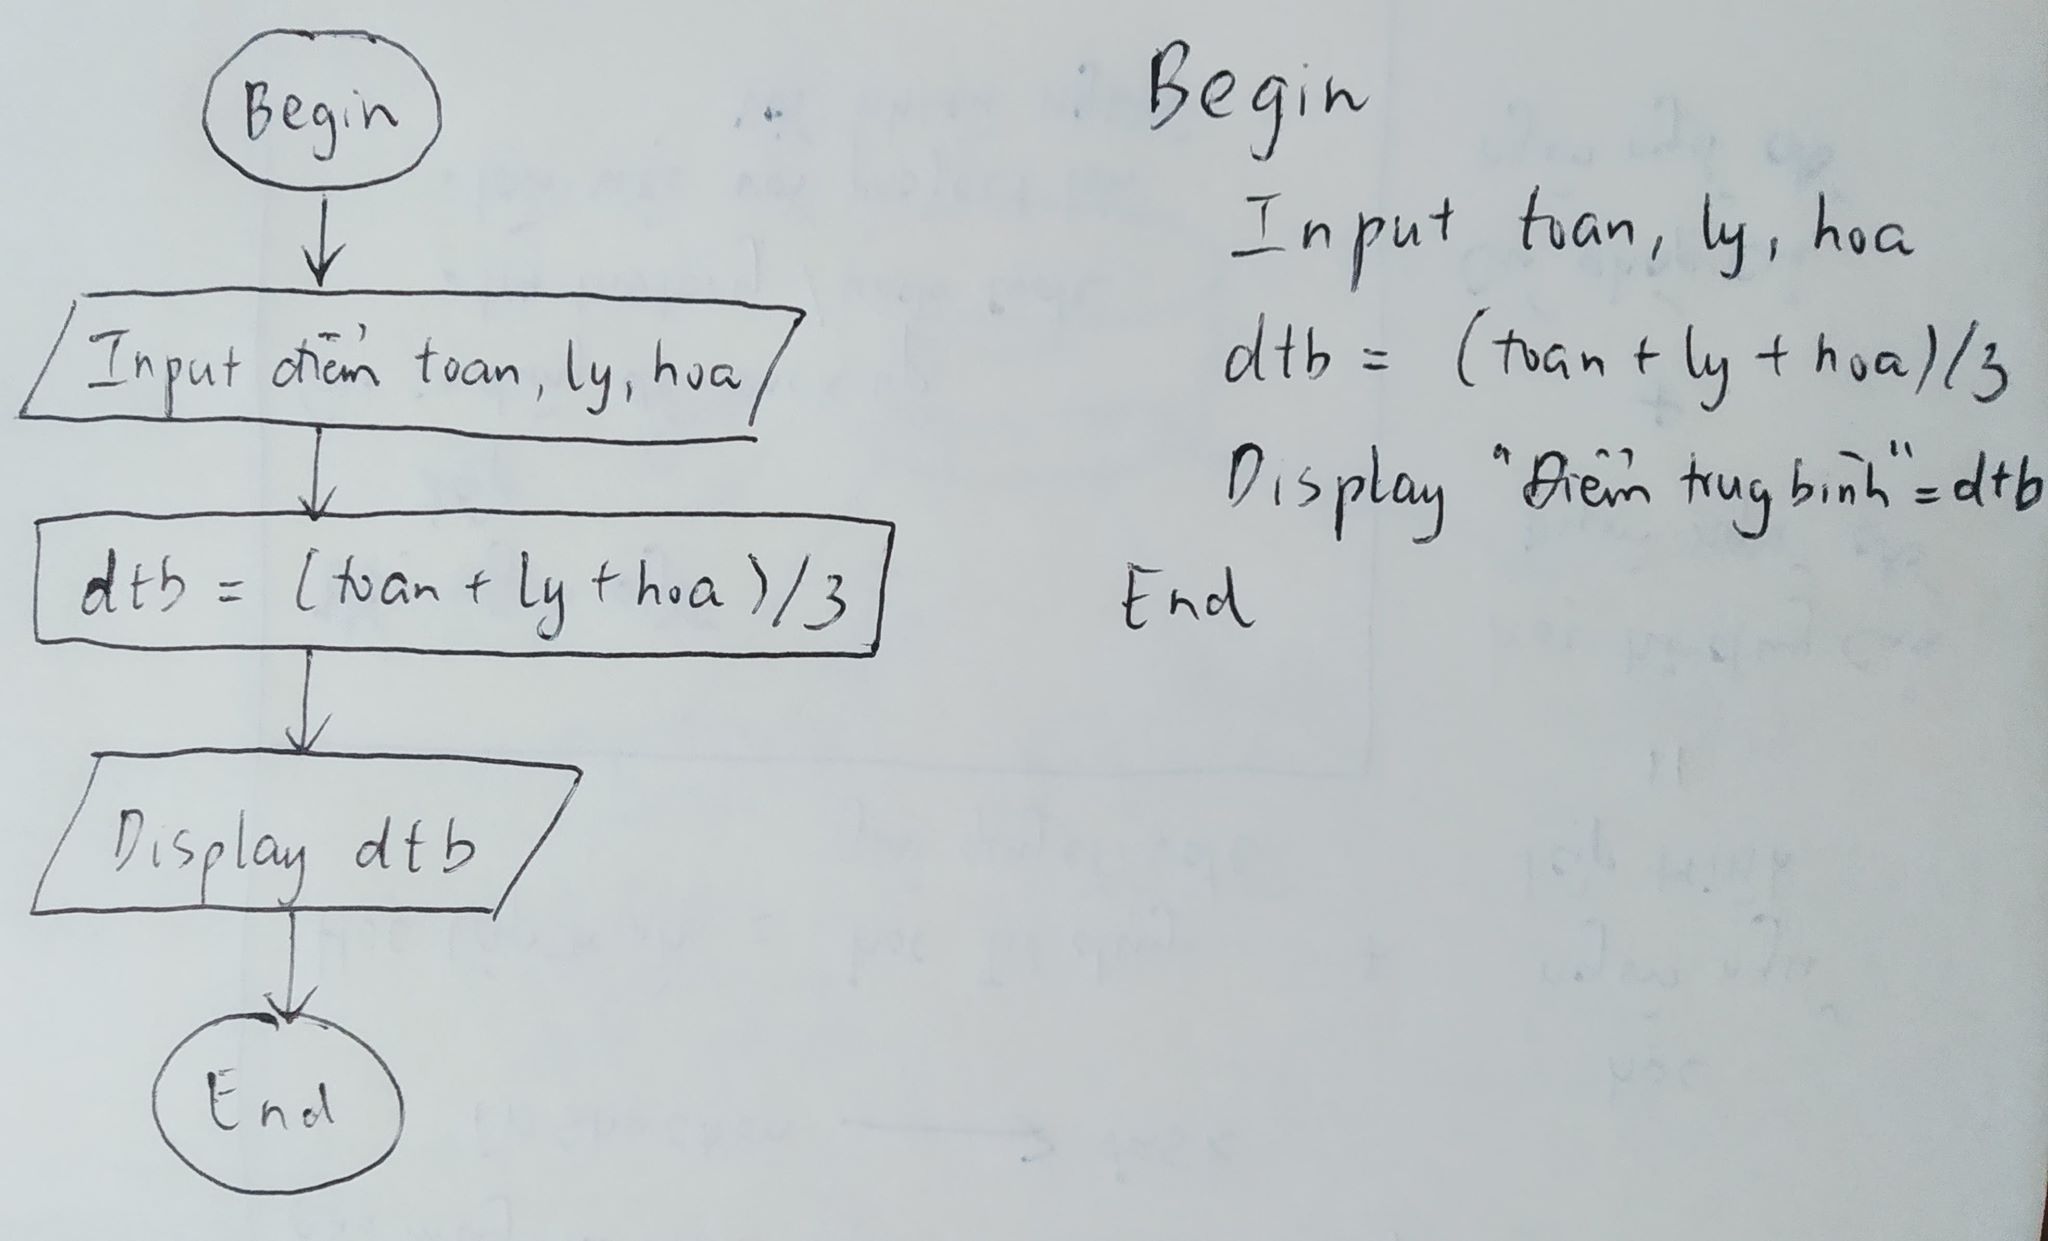 Begin
Input điểm toan, ly, hoa
dtb = (toan + ly + hoa)/3
Display dtb
End
Begin
Input toan, ly, hoa
dtb = (toan + ly + hoa)/3
Display "Điểm trug bình" = dtb
End